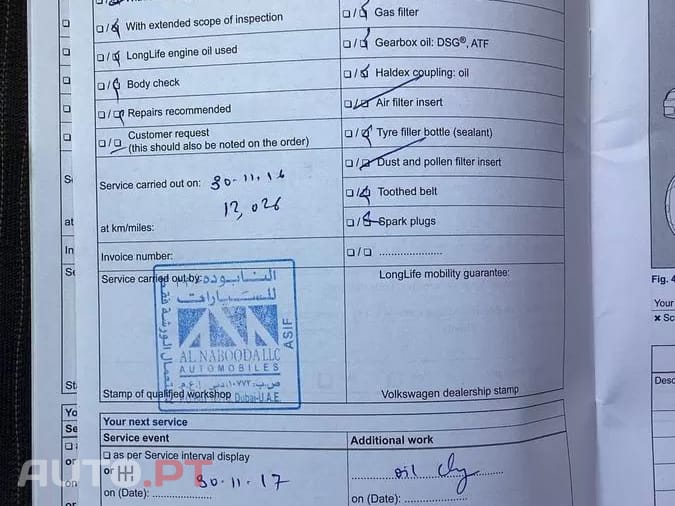 ❏/❏ With extended scope of inspection
❏/❏ LongLife engine oil used
❏/❏ Body check
❏/❏ Repairs recommended
❏/❏ Customer request
(this should also be noted on the order)
Service carried out on: 30-11.16
12,026
at km/miles:
Invoice number:
Service carried out by:
النابوده
للسيارات
AL NABOODA LLC
AUTOMOBILES
Dubai-U.A.E.
ASIF
Stamp of qualified workshop
❏/❏ Gas filter
❏/❏ Gearbox oil: DSG®, ATF
❏/❏ Haldex coupling: oil
❏/❏ Air filter insert
❏/❏ Tyre filler bottle (sealant)
❏/❏ Dust and pollen filter insert
❏/❏ Toothed belt
❏/❏ Spark plugs
❏/❏ ......................
LongLife mobility guarantee:
Volkswagen dealership stamp
Your next service
Service event
❏ as per Service interval display
or
30-11-17
on (Date): ....................
Additional work
oil
on (Date): .....................
Fig. 4
Your
Desc
AUTO.PT